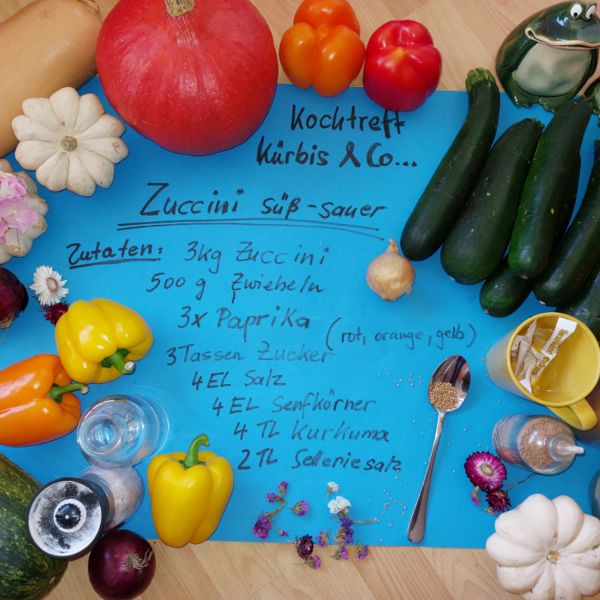 Kochtreff
Kürbis & Co...
Zuccini süß-sauer
Zutaten: 3kg Zuccini
500 g Zwiebeln
3x Paprika (rot, orange, gelb)
3 Tassen Zucker
4 EL Salz
4 EL Senfkörner
4 TL Kurkuma
2 TL Selleriesalz